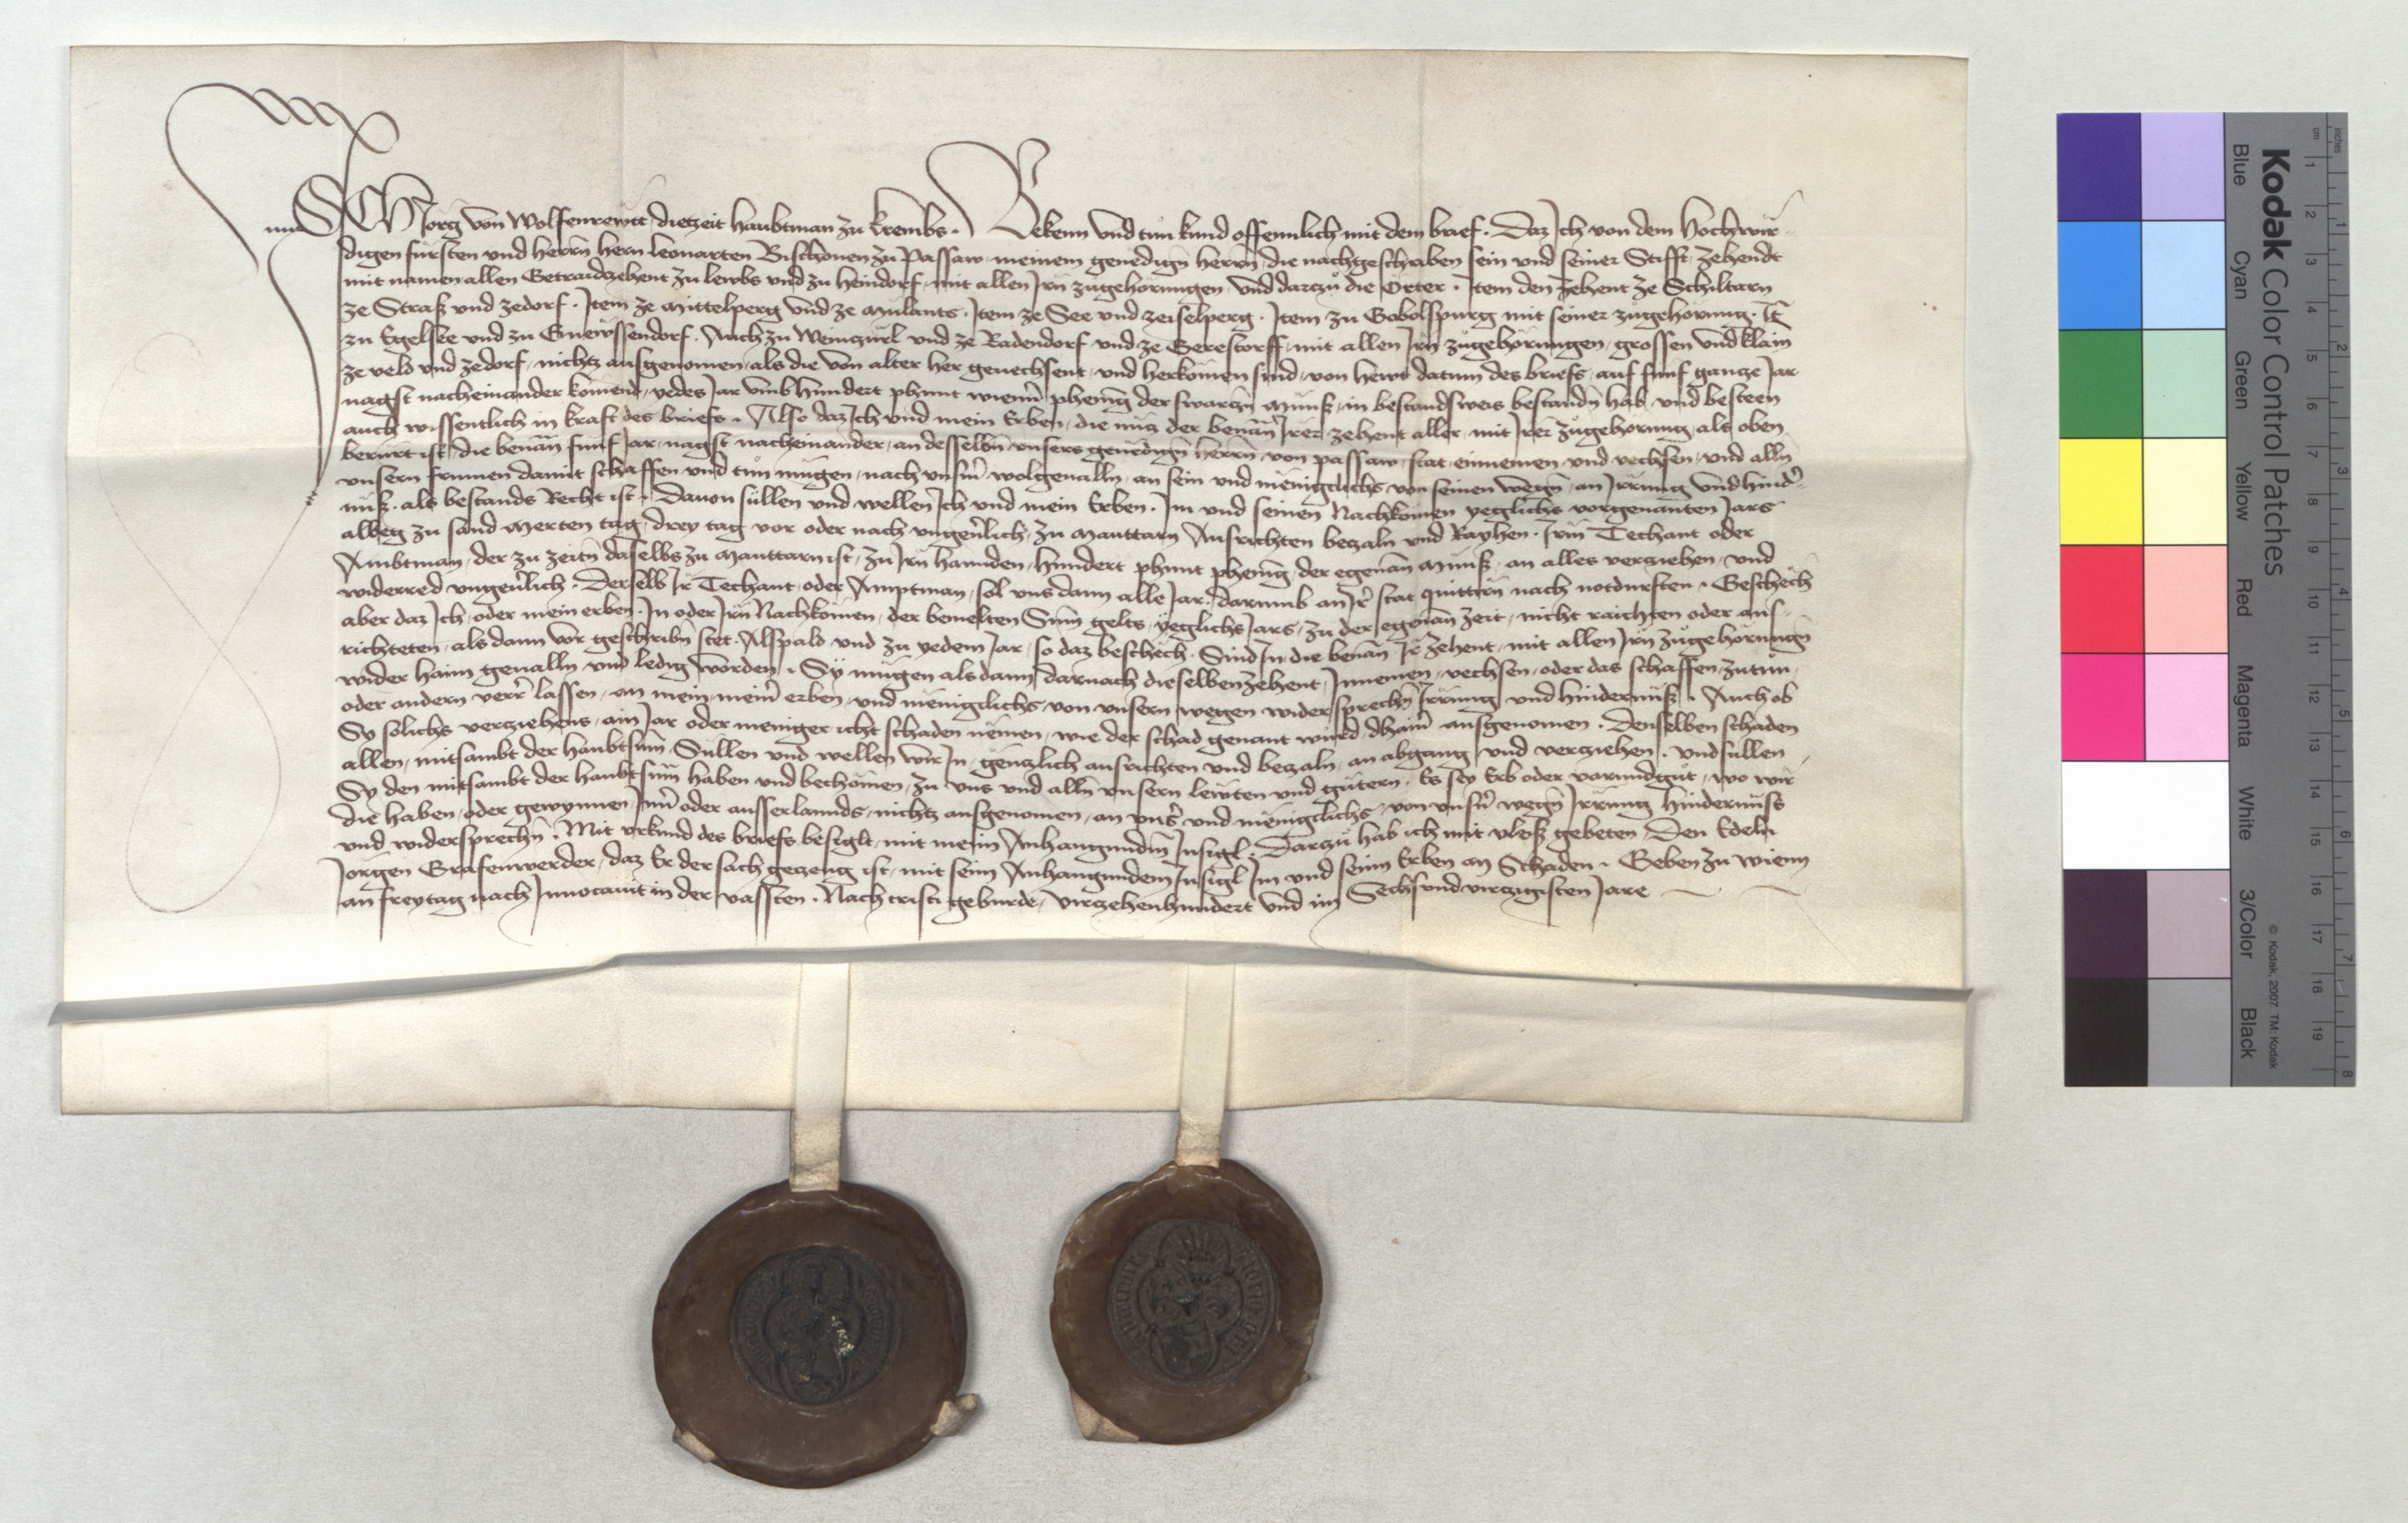 ICH Jörg von Wolfenrewtt dietzeit haubtman zu krembs. Bekenn vnd tun kund offennlich mit dem brief. Daz Ich von dem Hochwir-
digen fürsten vnd herrn hern leonarten Bischouen zu Passaw meinem genedign herrn die nachgeschriben sein vnd seiner Stifft zehendt
mit namen allen Getraidzehent zu lewbs vnd zu heindorf mit allen Irn zugehorungen vnd darczu die Örter. Item den zehent ze Schiltarn
ze Straß vnd zedorf. Item ze Mittelperg vnd ze Mulants. Item ze See vnd zeiselperg. Item zu Gobolspurg mit seiner zugehorung. It
zu Egelsee vnd zu Gnewssendorf. Auch zu Weinczürl vnd ze Radendorf vnd ze Gerestorff mit allen Irn zugehörungen grossen vnd klain
ze veld vnd zedorf nichtz ausgenomen als die von alter her geuechsent vnd herkomen sind von hewt datum des briefs auf funf gancze Jar
nagst nacheinander komend yedes Jar vmb hundert phunt wienn phening der swarczn Munß in bestandsweis bestandn hab vnd besteen
auch wissentlich in kraft des briefs. Also daz Ich vnd mein Erben die nucz der benan Irer zehent aller mit Irer zugehorung als oben
berürt ist die benan funf Jar nagst nacheinander an desselbn vnsers genedign herrn von passaw stat einnemen vnd vechsen vnd alln
vnsern frumen damit schaffen vnd tun mugen nach vnsern wolgeualln an sein vnd menigclichs von seinen wegn an Irrung vnd hinder
nuß. als bestands Recht ist. Dauon sullen vnd wellen Ich vnd mein Erben. Im vnd seinen Nachkomen yeglichs vorgenanten Jars
albeg zu sand Merten tag drey tag vor oder nach vngeuerlich zu Mauttarn Ausrichten beczaln vnd Rayhen. Irm Techant oder
Ambtman der zu zeitn daselbs zu Mauttarn ist zu Irn hannden hundert phunt phening der egenan Munß an alles verziehen vnd
widerred vngeuerlich. Derselb Ir Techant oder Amptman sol vns dann alle Jar darumb an Ir stat quittirn nach notdurften. Geschech
aber daz Ich oder mein erben. In oder Irn Nachkomen der bemelten Sum gelts yeglichs Jars zu der egenan zeit nicht raichten oder aus-
richteten als dann vor geschribn stet. Alspald vnd zu yedem Jar so daz beschech. Sind In die benan Ir zehent mit allen Irn zugehorungn
wider haim geualln vnd ledig worden. Sy mugen als dann darnach dieselben zehent Innemen vechsen oder das schaffen zutun
oder andern verr lassen an mein meinr erben vnd menigclichs von vnsern wegen widersprechn Irrung vnd hindernuß. Auch ob
Sy solichs verziehens ain Jar oder meniger icht schaden nemen wie der schad genant wurd dhain ausgenomen. Denselben schaden
allen mitsambt der haubtsum Sullen vnd wellen wir In genczlich ausrichten vnd beczaln an abgang vnd verziehen. vnd sullen
Sy den mitsambt der haubtsum haben vnd bechomen zu vns vnd alln vnsern lewten vnd gutern. Es sey Erb oder varundgut wo wir
die haben oder gewynnen Inn oder ausserlannds nichtz ausgenomen an vns vnd menigclichs von vnsern wegn Irrung hindernuss
vnd widersprechn. Mit vrkund des briefs besiglt mit meim Anhangundm Insigl. Darczu hab ich mit vleiß gebeten Den Edeln
Jorgen Grafenwerder daz Er der sach geczeug ist mit seim Anhangundem Insigl Im vnd seinn Erben an Schaden. Geben zu wienn
an freytag nach Inuocauit in der vassten. Nach cristi geburde vierczehenhundert vnd im Sechsvndvierczigisten Jare
Kodak Color Control Patches
© Kodak, 2007 TM: Kodak
Blue Cyan Green Yellow Red Magenta White 3/Color Black
cm 1 2 3 4 5 6 7 8 9 10 11 12 13 14 15 16 17 18 19
inches 1 2 3 4 5 6 7 8